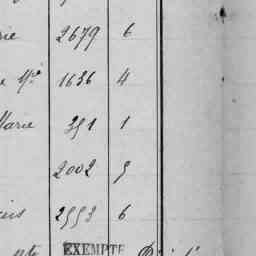 rie 2679 6
e Mé 1636 4
Marie 391 1
2002 9
uis 2993 6
EXEMPTE